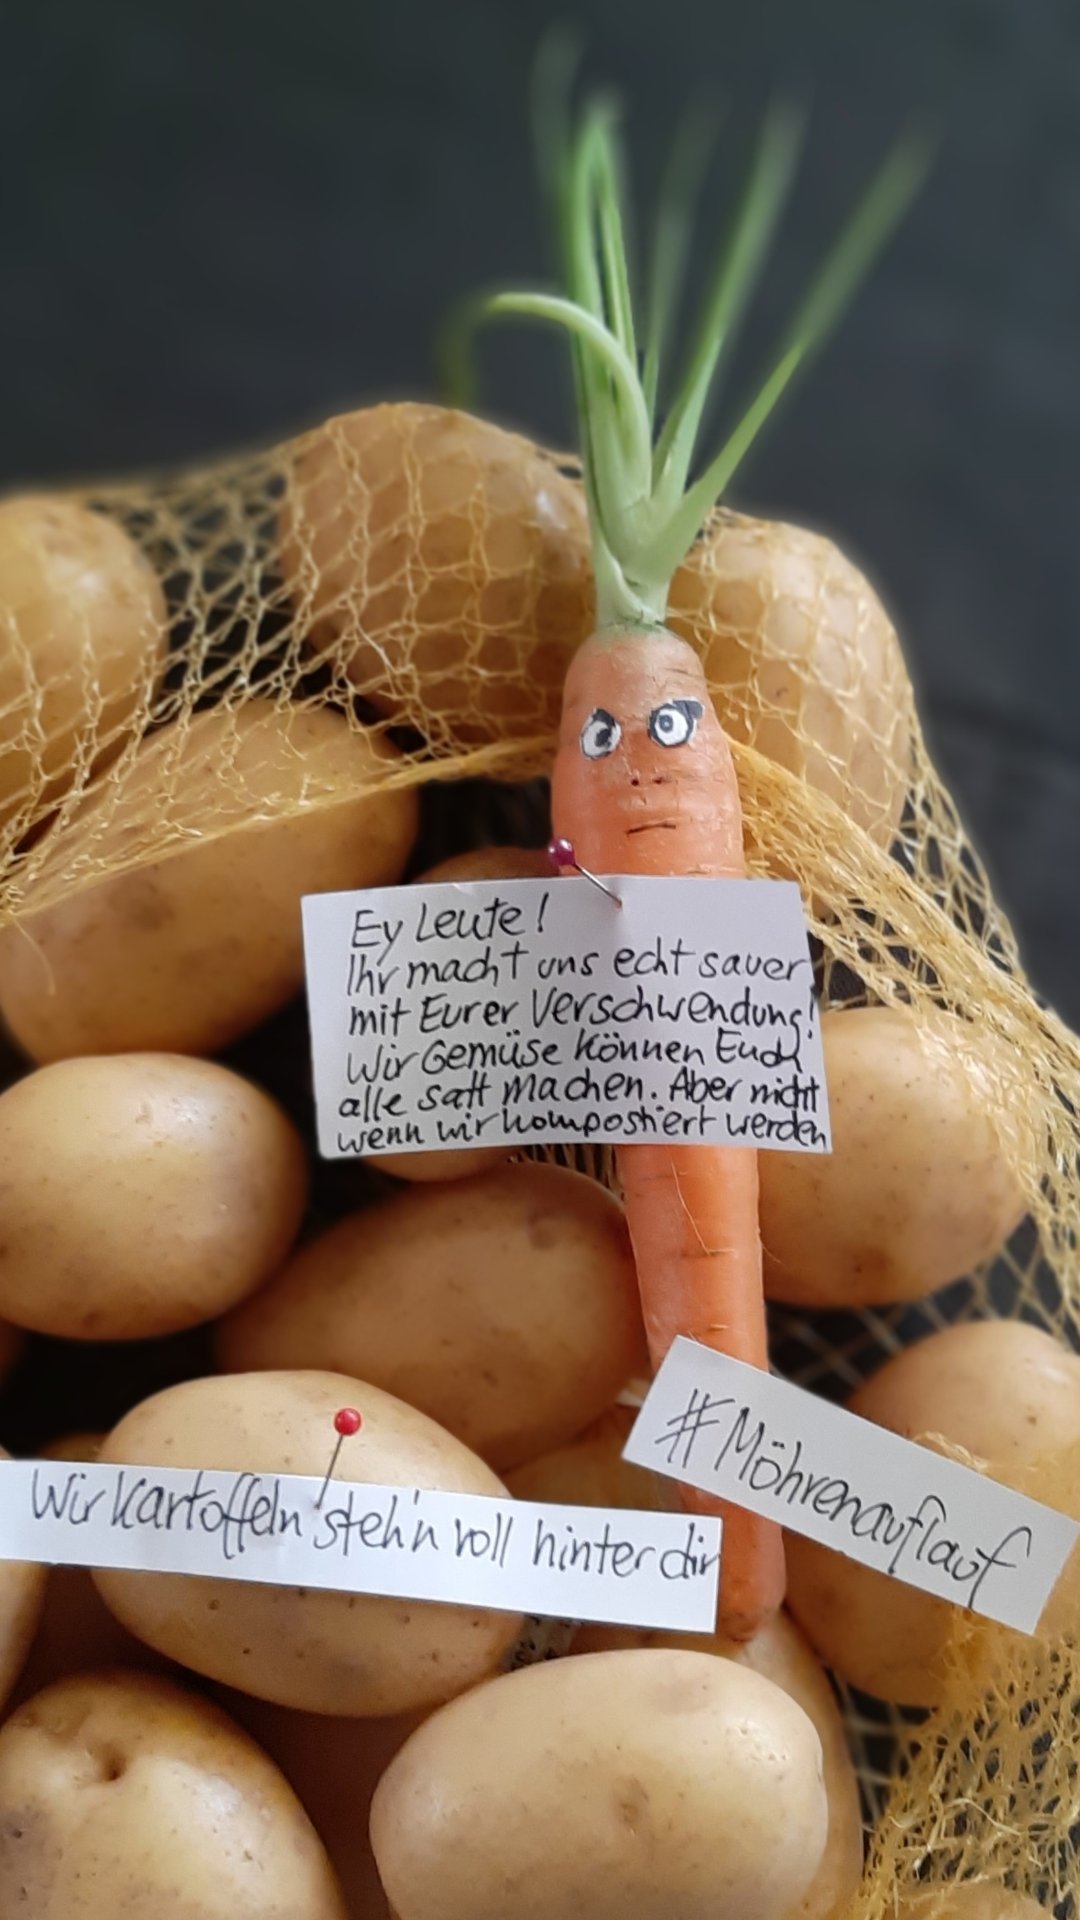 Ey Leute!
Ihr macht uns echt sauer
mit Eurer Verschwendung!
Wir Gemüse können Euch
alle satt machen. Aber nicht
wenn wir kompostiert werden
#Möhrenauflauf
Wir Kartoffeln steh'n voll hinter dir